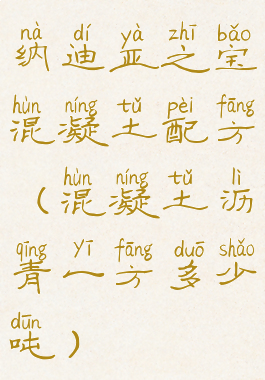 nà dí yà zhī bǎo
纳迪亚之宝
hùn níng tǔ pèi fāng
混凝土配方
hùn níng tǔ lì
(混凝土沥
qīng yī fāng duō shǎo
青一方多少
dūn
吨)